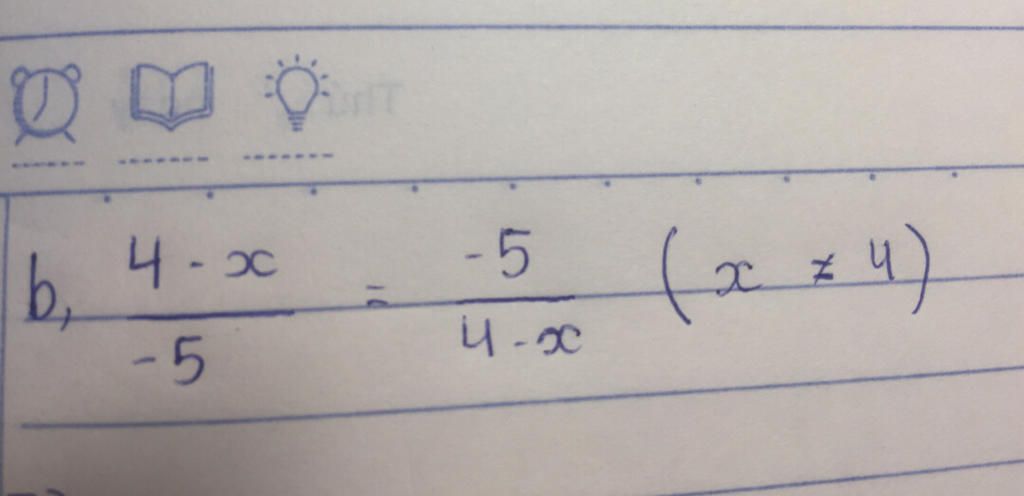 b, \frac{4 - x}{-5} = \frac{-5}{4 - x} (x ≠ 4)